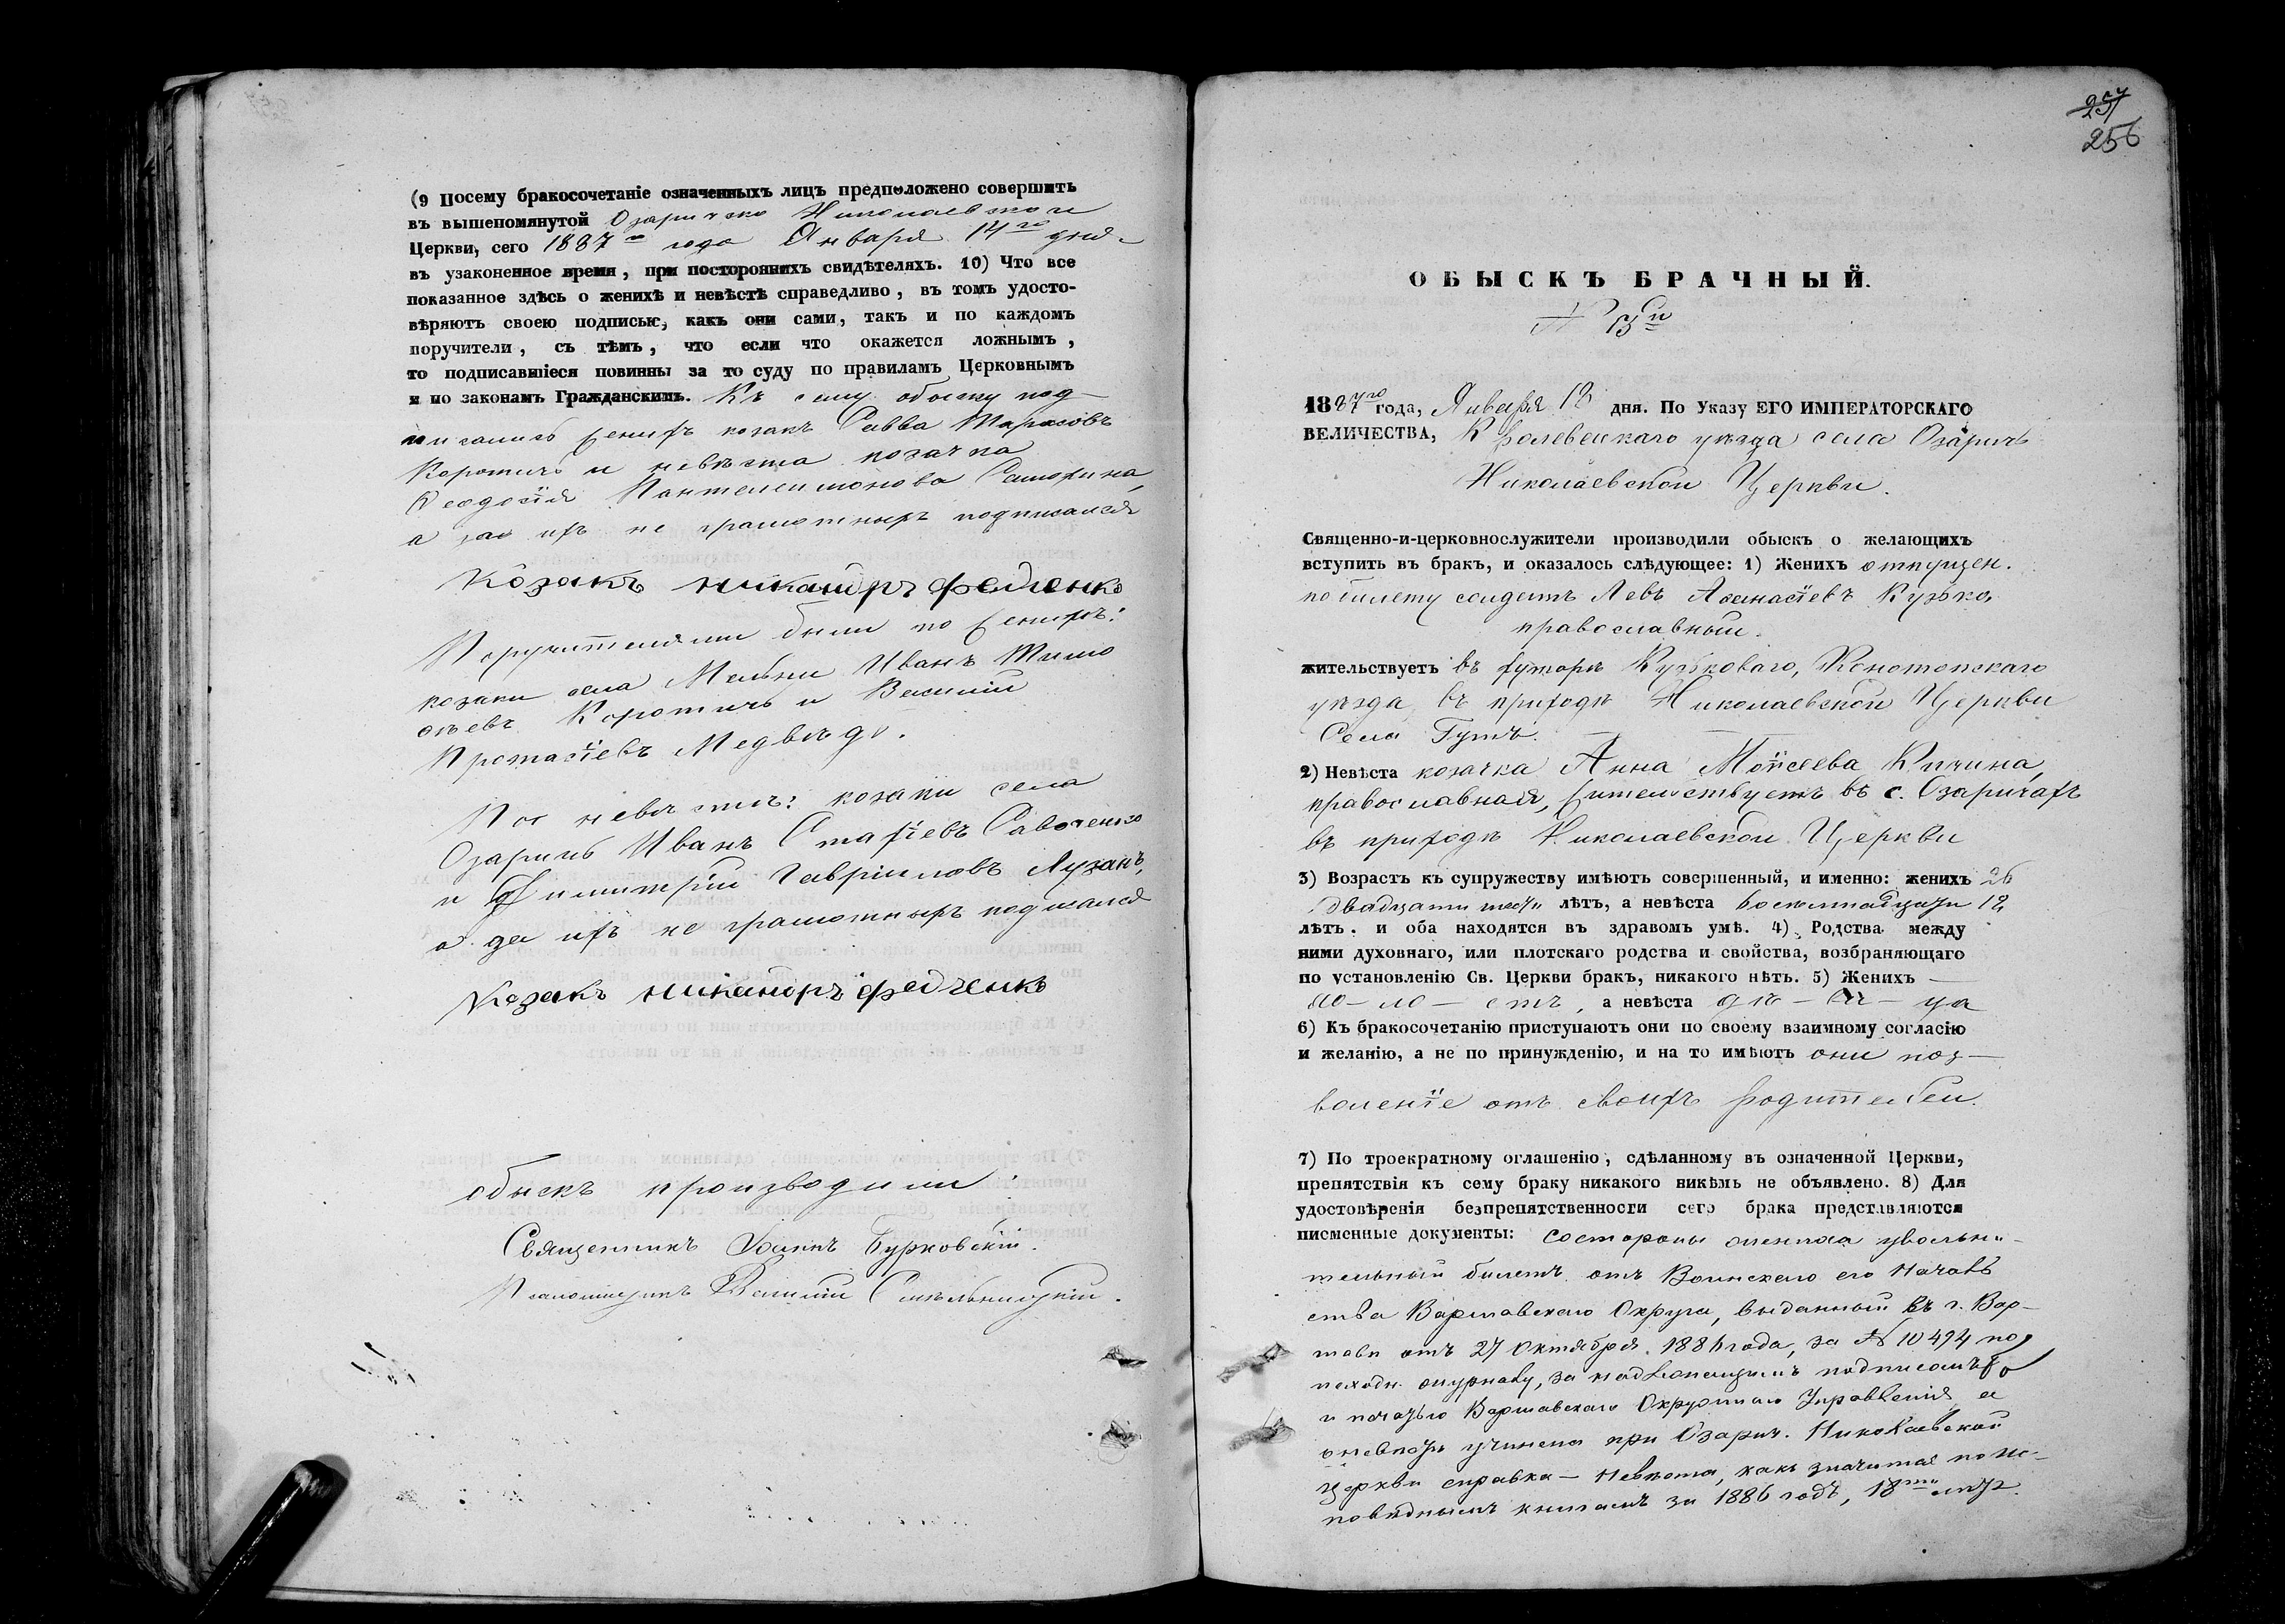 (9 Посему бракосочетаніе означенныхъ лицъ предположено совершить
въ вышепомянутой Озаричско Николаевской
Церкви, сего 1887го года Января 14го дня
въ узаконенное время, при постороннихъ свидѣтеляхъ. 10) Что все
показанное здѣсь о женихѣ и невѣстѣ справедливо, въ томъ удосто-
вѣряютъ своею подписью, какъ они сами, такъ и по каждомъ
поручители, съ тѣмъ, что если что окажется ложнымъ,
то подписавшіеся повинны за то суду по правиламъ Церковнымъ
и по законамъ Гражданскимъ. Къ сему обыску под-
писались женихъ козакъ Савва Тарасовъ
Коротичъ и невѣста козачка
Феодосія Пантелеимонова
а за ихъ не грамотныхъ подписался
Козакъ никаноръ федченко
Поручителями были по женихѣ:
козаки села Мельни Иванъ Тимо
ѳеевъ Коротичъ и Василій
Протасіевъ Медвѣдь.
По невѣстѣ: козаки села
Озаричъ Иванъ Стахіевъ Савченко
и Димитрій Гавріиловъ Лузанъ,
а за ихъ не грамотныхъ подписался
Козакъ никаноръ федченко
обыскъ производили:
Священникъ Іоаннъ Бурковскій.
Псаломщикъ Василій
257
256
ОБЫСКЪ БРАЧНЫЙ.
№ 3й
1887го года, Января 13 дня. По Указу ЕГО ИМПЕРАТОРСКАГО
ВЕЛИЧЕСТВА, Кролевецкаго уѣзда села Озаричъ
Николаевской Церкви.
Священно-и-церковнослужители производили обыскъ о желающихъ
вступить въ бракъ, и оказалось слѣдующее: 1) Женихъ отпущен.
по билету солдатъ Левъ Аѳанасіевъ Кузько,
православный.
жительствуетъ въ хуторѣ Кузьковаго, Конотопскаго
уѣзда, въ приходѣ Николаевской Церкви
Села Гутъ.
2) Невѣста козачка Анна Моисеева Кичина,
православная, жительствуетъ въ с. Озаричахъ
въ приходѣ Николаевской Церкви
3) Возрастъ къ супружеству имѣютъ совершенный, и именно: женихъ 26
двадцати шести лѣтъ, а невѣста восемнадцати 18
лѣтъ. и оба находятся въ здравомъ умѣ. 4) Родства между
ними духовнаго, или плотскаго родства и свойства, возбраняющаго
по установленію Св. Церкви бракъ, никакого нѣтъ. 5) Женихъ —
хо — ло — стъ, а невѣста дѣ — ви — ца
6) Къ бракосочетанію приступаютъ они по своему взаимному согласію
и желанію, а не по принужденію, и на то имѣютъ они поз—
воленіе отъ своихъ родителей.
7) По троекратному оглашенію, сдѣланному въ означенной Церкви,
препятствія къ сему браку никакого никѣмъ не объявлено. 8) Для
удостовѣренія безпрепятственности сего брака представляются
писменные документы: со стороны жениха увольни-
тельный билетъ отъ Воинскаго его Началь
ства Варшавскаго Округа, выданный въ г. Вар-
шавѣ отъ 27 Октября 1884 года, за № 10494 по
исходн. журналу, за надлежащимъ подписомъ
и печатью Варшавскаго Окружнаго Управленія, а
о невѣстѣ учинена при Озарич. Николаевской
церкви справка — Невѣста, какъ значится по ис-
повѣднымъ книгамъ за 1886 годъ, 18ти лѣтъ.